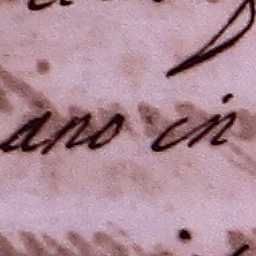 ano in